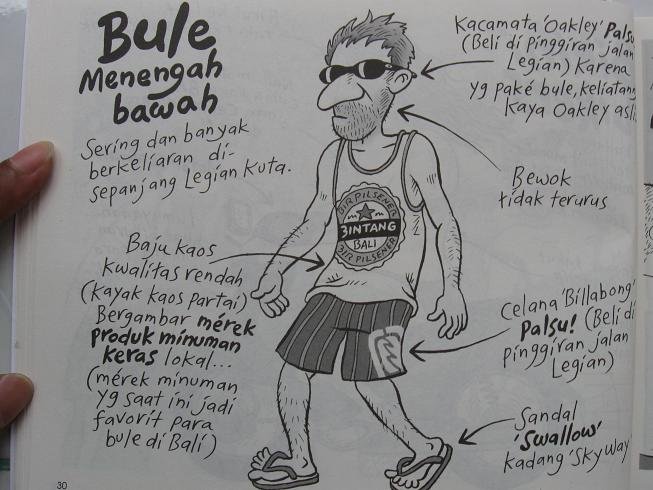 Bule
Menengah
bawah
Sering dan banyak
berkeliaran di-
sepanjang Legian Kuta.
Kacamata 'Oakley' Palsu
(Beli di pinggiran jalan
Legian) Karena
yg paké bule, keliatan
Kaya Oakley asli
Bewok
tidak terurus
Baju kaos
kwalitas rendah
(kayak kaos partai)
Bergambar mérek
produk minuman
keras lokal...
(mérek minuman
yg saat ini jadi
favorit para
bule di Bali)
BIR PILSENER
BINTANG
BALI
BIR PILSENER
Celana 'Billabong'
Palsu! (Beli di
pinggiran jalan
Legian)
Sandal
'Swallow'
kadang 'Skyway'
30